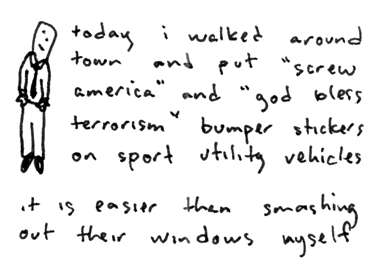 today i walked around
town and put "screw
america" and "god bless
terrorism" bumper stickers
on sport utility vehicles
it is easier then smashing
out their windows myself